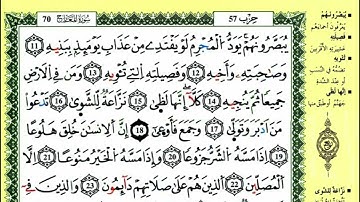 70 سُورَةُ المَعَارِجِ حِزْب 57
يُبَصَّرُونَهُمْ يَوَدُّ الْمُجْرِمُ لَوْ يَفْتَدِي مِنْ عَذَابِ يَوْمِئِذٍ بِبَنِيهِ 11
وَصَاحِبَتِهِ وَأَخِيهِ 12 وَفَصِيلَتِهِ الَّتِي تُئْوِيهِ 13 وَمَن فِي الْأَرْضِ
جَمِيعًا ثُمَّ يُنجِيهِ 14 كَلَّا إِنَّهَا لَظَىٰ 15 نَزَّاعَةً لِّلشَّوَىٰ 16 تَدْعُوا
مَنْ أَدْبَرَ وَتَوَلَّىٰ 17 وَجَمَعَ فَأَوْعَىٰ 18 إِنَّ الْإِنسَانَ خُلِقَ هَلُوعًا
19 إِذَا مَسَّهُ الشَّرُّ جَزُوعًا 20 وَإِذَا مَسَّهُ الْخَيْرُ مَنُوعًا 21 إِلَّا
الْمُصَلِّينَ 22 الَّذِينَ هُمْ عَلَىٰ صَلَاتِهِمْ دَائِمُونَ 23 وَالَّذِينَ فِي
يُبَصَّرُونَهُمْ
فَصِيلَتِهِ
إنَّهَا لَظَى
نَزَّاعَةً لِلشَّوَى